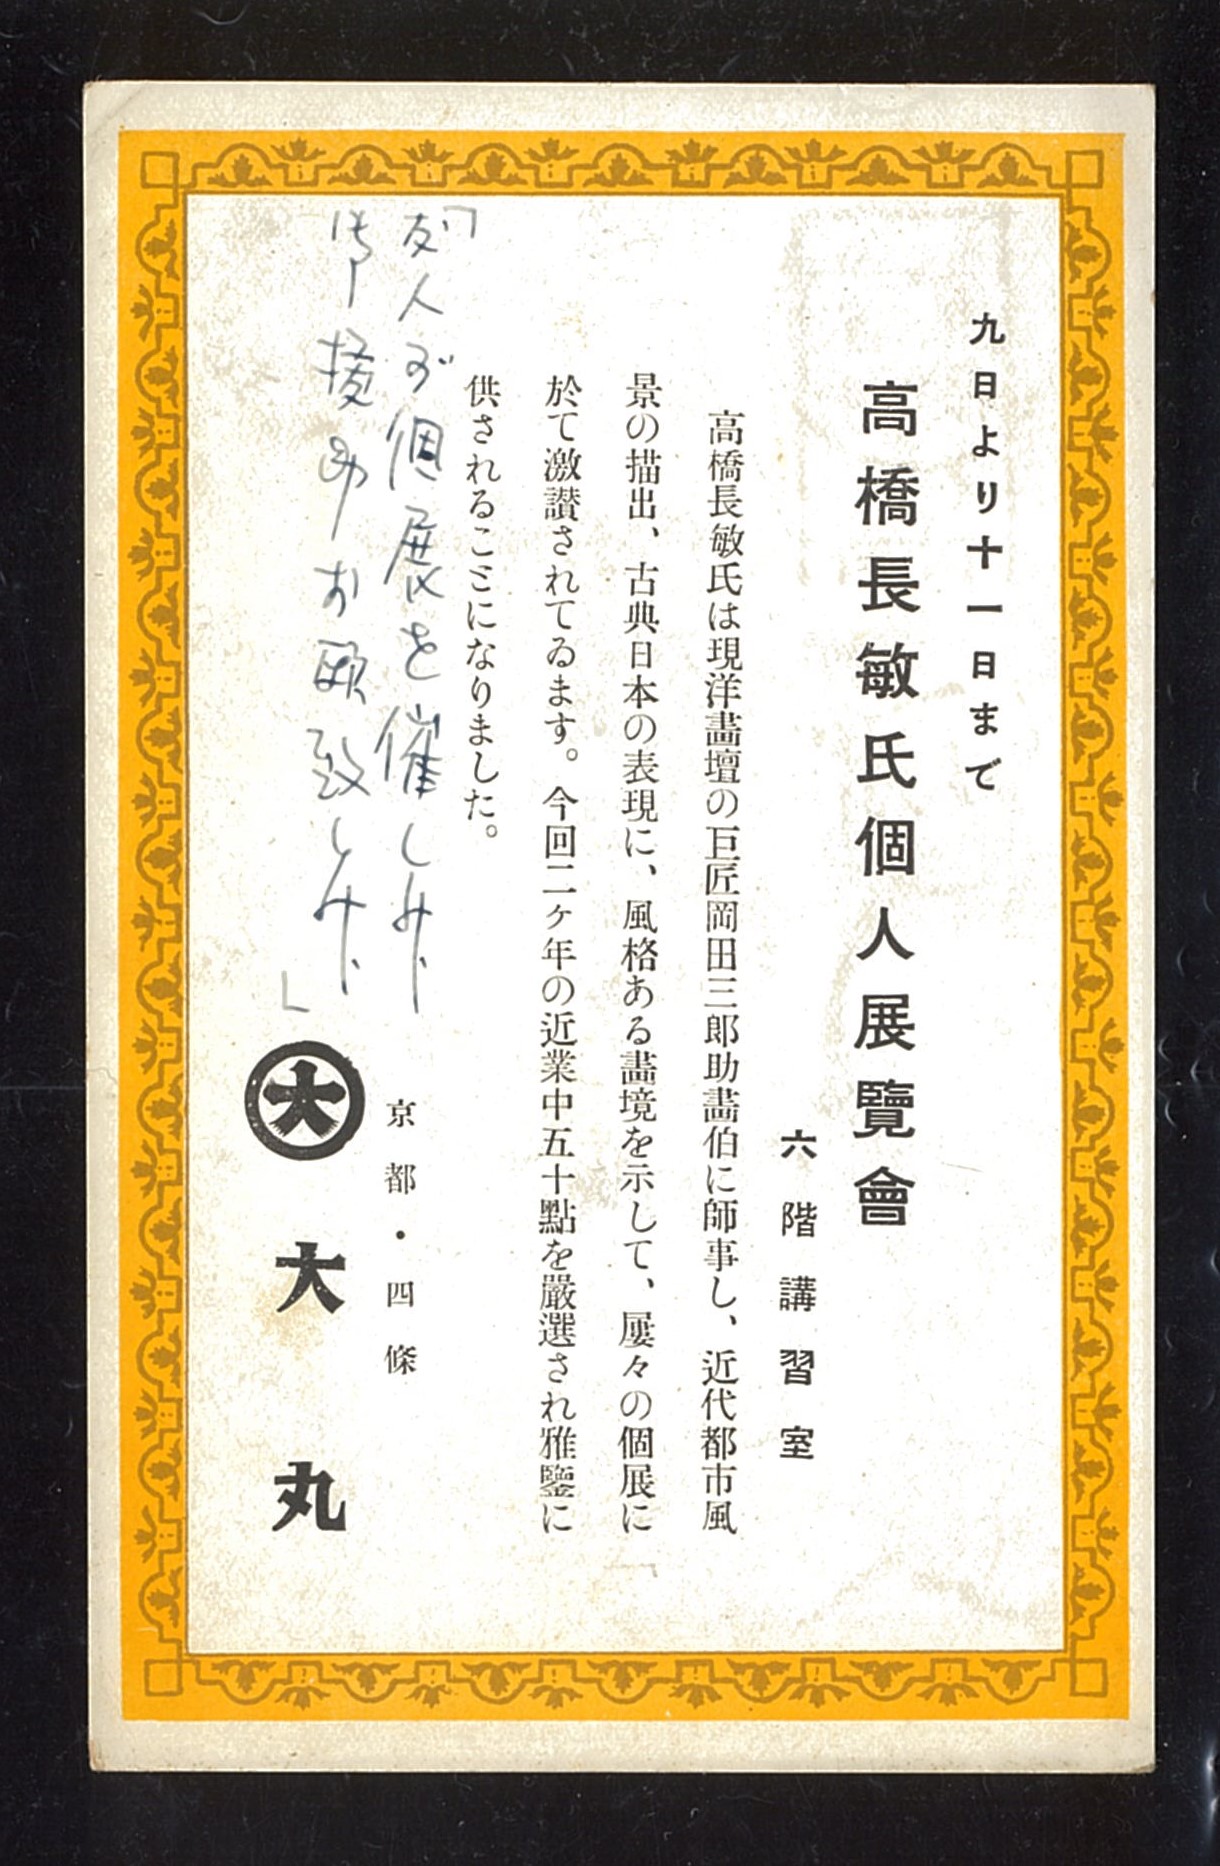 九日より十一日まで
高橋長敏氏個人展覽會
六階講習室
高橋長敏氏は現洋畵壇の巨匠岡田三郎助畵伯に師事し、近代都市風
景の描出、古典日本の表現に、風格ある畵境を示して、屢々の個展に
於て激讃されてゐます。今回二ヶ年の近業中五十點を嚴選され雅鑒に
供されるこミになりました。
「友人が個展を催します
御援助お願致します」
京都・四條
大
大丸